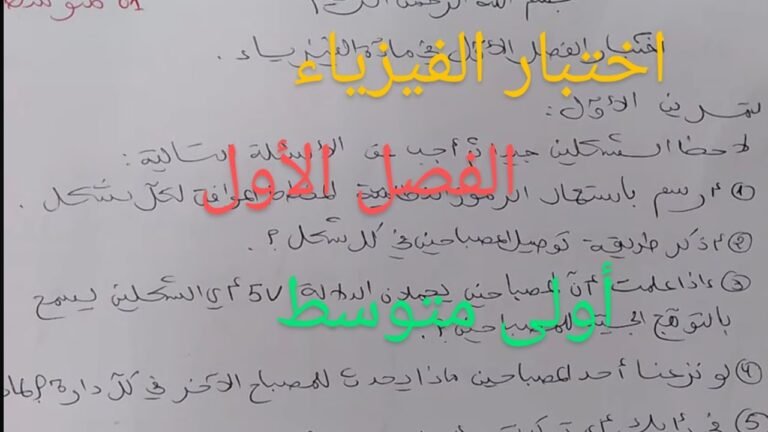 بسم الله الرحمن الرحيم
01 متوسط
اختبار الفصل الأول في مادة الفيزياء .
اختبار الفيزياء
تمرين الأول :
لاحظ الشكلين جيدا ثم أجب عن الأسئلة التالية :
الفصل الأول
① أرسم باستعمال الرموز النظامية المخطط الموافق لكل شكل .
② أذكر طريقة توصيل المصباحين في كل شكل ؟ .
③ إذا علمت أن المصباحين يحملان الدلالة 5V أي الشكلين يسمح
أولى متوسط
بالتوهج الجيد للمصباحين ؟
④ لو نزعنا أحد المصباحين ماذا يحدث للمصباح الآخر في كل دارة ؟ لماذا
⑤ في رأيك أي